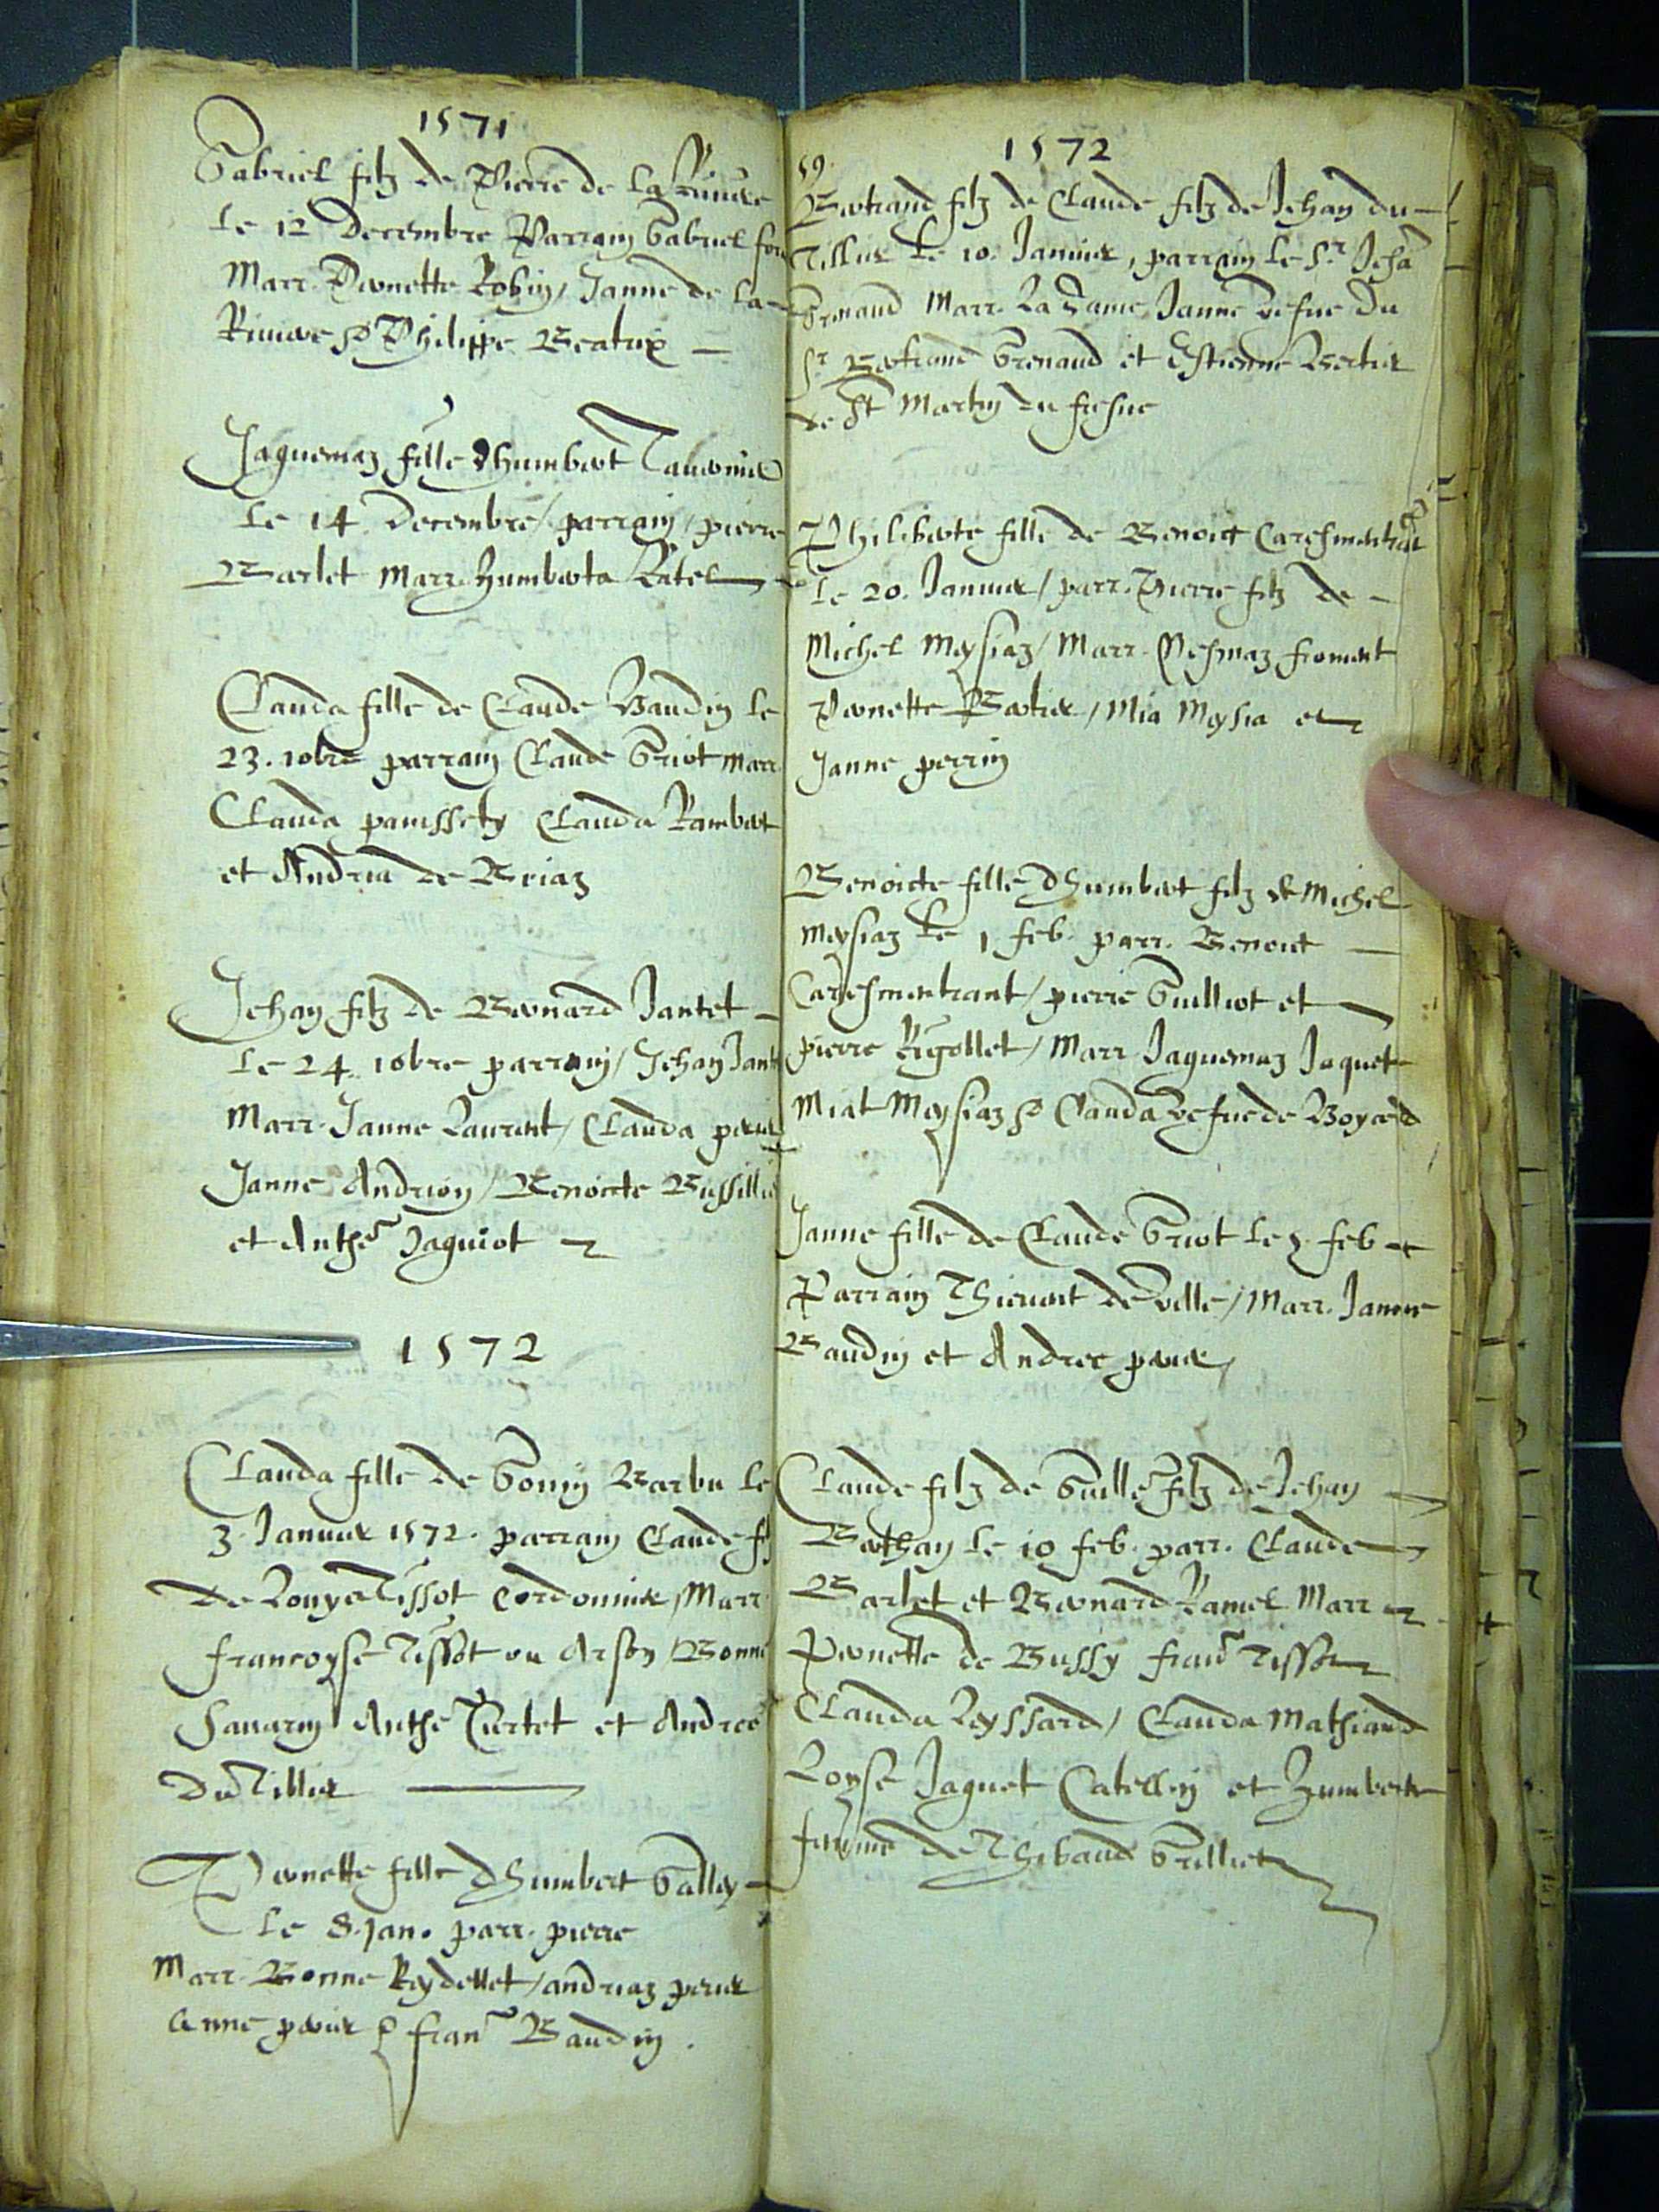 1571
Gabriel filz de Pierre de la Riviere
le 12 Decembre Parrain Gabriel
Marr. Pernette Robin, Janne de la
Riviere & Philippe Beatrix
Jaquemaz fille dhumbert Tavernier
le 14 Decembre / parrain / pierre
Barlet Marr. humberta Ratel
Clauda fille de Claude Baudin le
23. 10bre parrain Claude Griot Marr
Clauda Clauda Rambert
et Andrea de Briaz
Jehan filz de Bernard Jantet
le 24 10bre parrain / Jehan Jant
Marr. Janne Laurent / Clauda
Janne Andrion / Benoicte
et Anthe Jaquiot
1572
Clauda fille de Gonin Barbu le
3 Janvier 1572. parrain Claude f
de Tissot Cordonnier / Marr
francoyse Tissot ou Arson / Bonne
Savarin Anthe et Andree
Du Tillier
Pernette fille dhumbert Galley
le 8. Jan. parr. pierre
Marr. Bonne Reydellet / andriaz perier
Anne perier & fran Baudin .
1572
59.
Bertrand filz de Claude filz de Jehan du
Tillier le 10. Janvier, parrain le Sr. Jehã
Grenaud Marr. La dame Janne vefue du
Sr Bertrand Grenaud et Estienne Bertier
de St Martin du fresne
Philiberte fille de Benoict Caresmentrant
le 20. Janvier / parr. Pierre filz de
Michel Meysiaz / Marr. froment
Pernette Bertier / Mia Meysia et
Janne perrin
Benoicte fille dhumbert filz de Michel
Meysiaz le 1 feb. parr. Benoict
Caresmentrant / pierre Guilliot et
pierre Rigollet / Marr Jaquemaz Jaquet
Miat Meysiaz & Clauda vefue de Boyard
Janne fille de Claude Griot le feb
Parrain Thievent de ville / Marr. Janne
Baudin et Andree perier
Claude filz de Guille filz de Jehan
Berthan le 10 feb. parr. Claude
Barlet et Bernard Ramel Marr
Pernette de Bussy fran Tissot
Clauda Leyssard / Clauda Mathiand
Loyse Jaquet Catellin et humberte
femme de Thibaud Grilliet